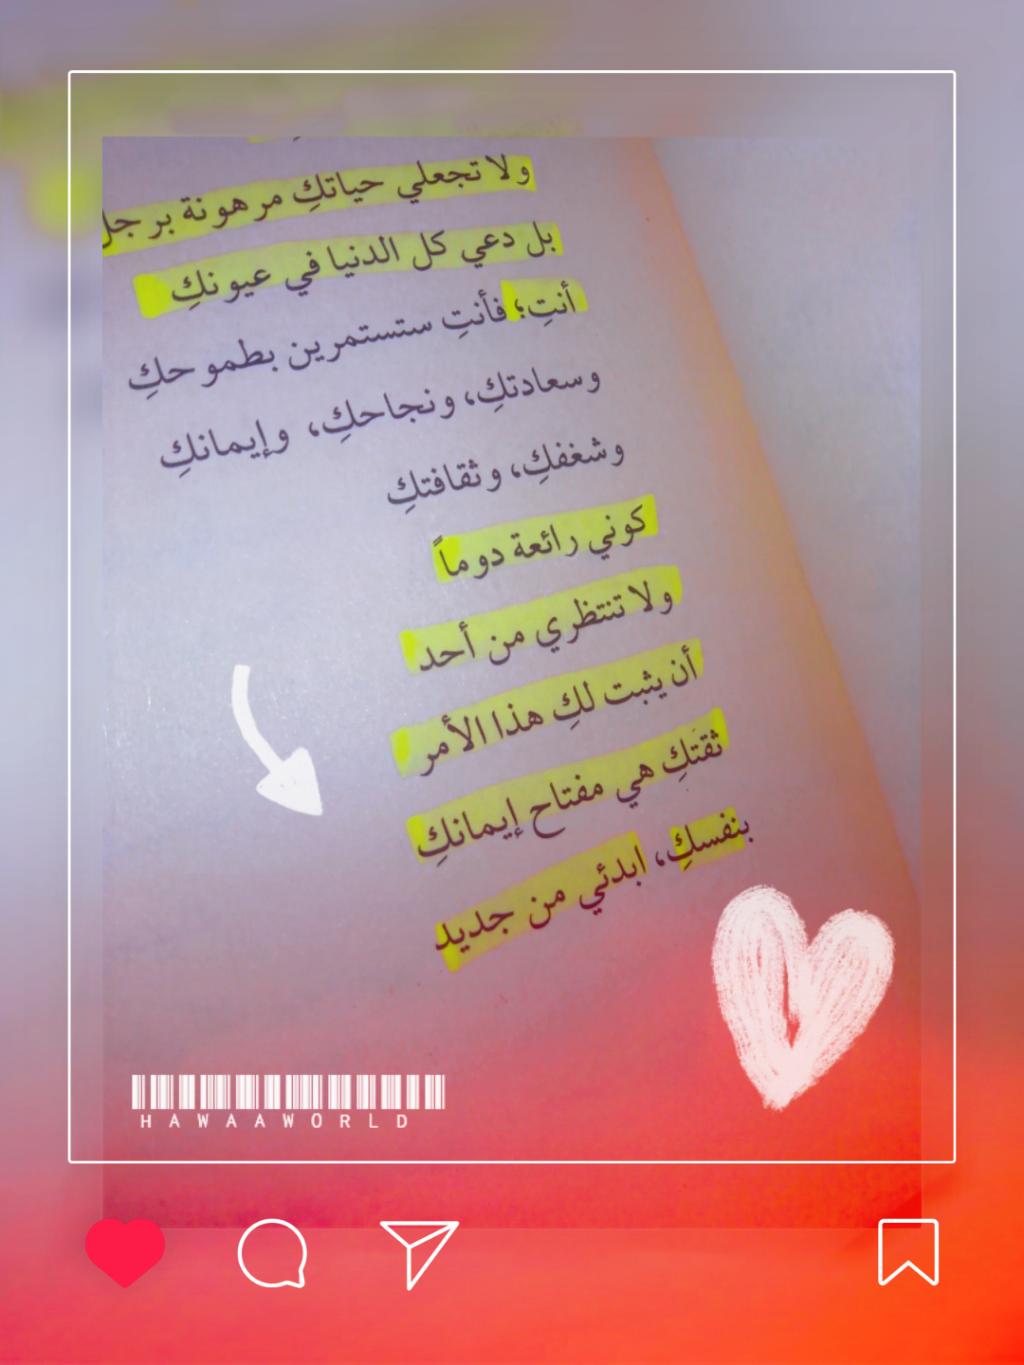 ولا تجعلي حياتكِ مرهونة برجل
بل دعي كل الدنيا في عيونكِ
أنتِ؛ فأنتِ ستستمرين بطموحكِ
وسعادتكِ، ونجاحكِ، وإيمانكِ
وشغفكِ، وثقافتكِ
كوني رائعة دوماً
ولا تنتظري من أحد
أن يثبت لكِ هذا الأمر
ثقتكِ هي مفتاح إيمانكِ
بنفسكِ، ابدئي من جديد
HAWAAWORLD